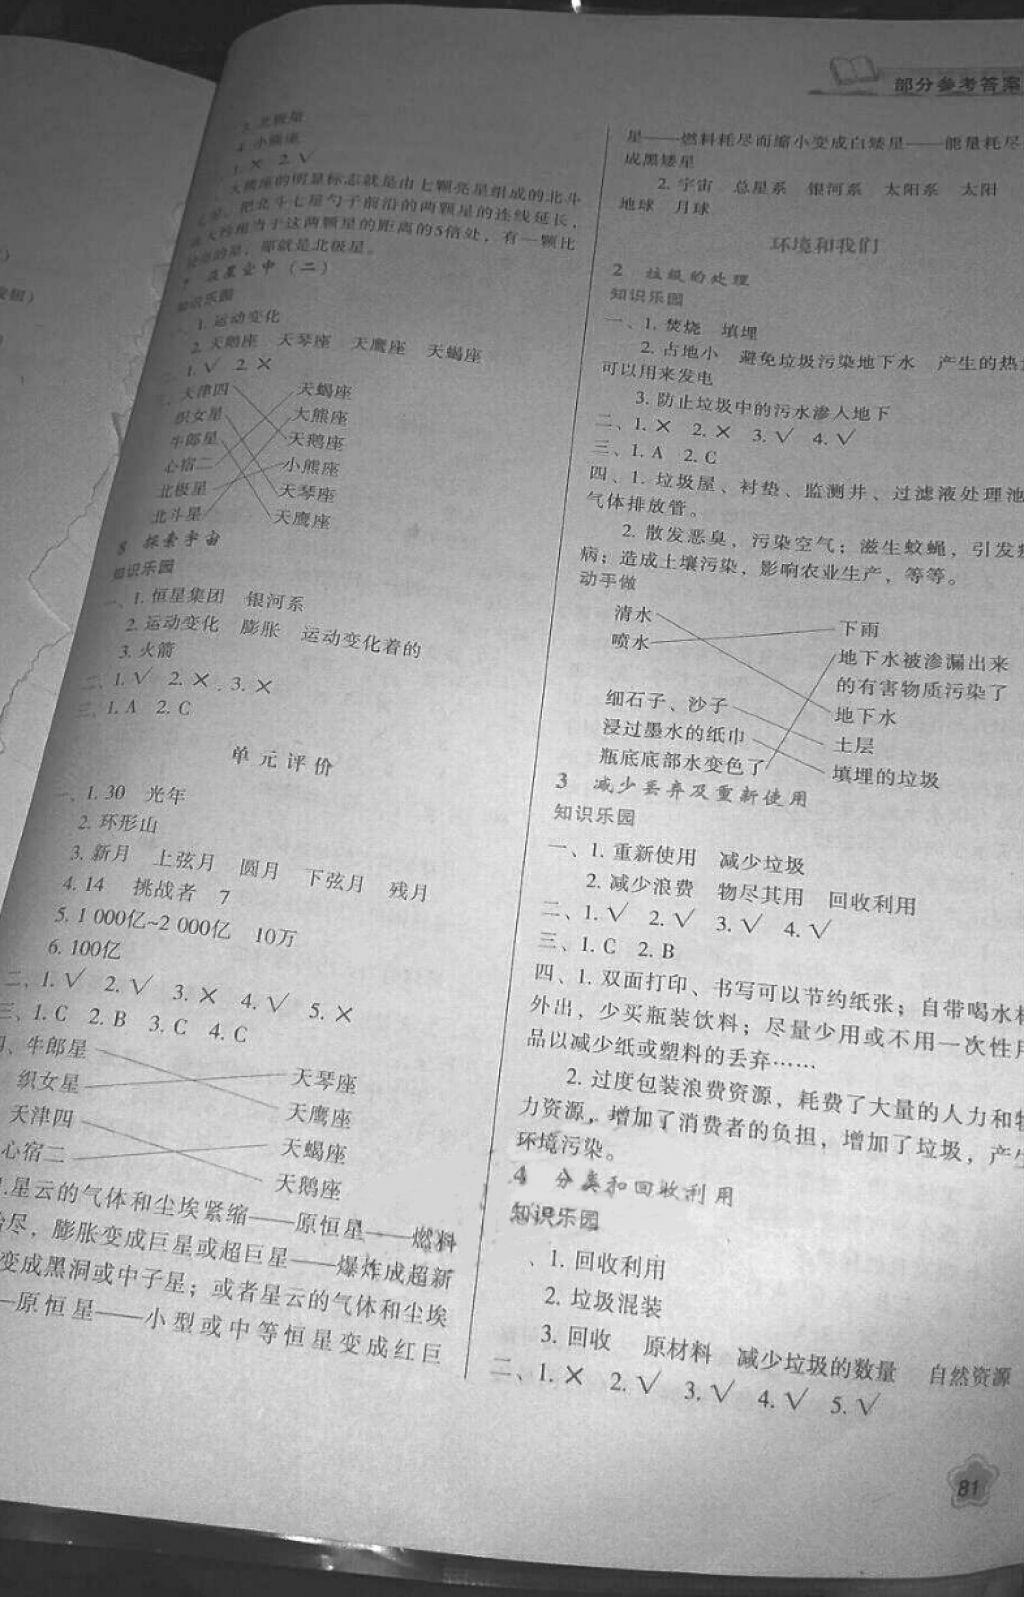 部分参考答案
3. 北极星
4. 小熊座
1. × 2. √
大熊座的明显标志就是由七颗亮星组成的北斗
七星。把北斗七星勺子前沿的两颗星的连线延长，
大约相当于这两颗星的距离的5倍处，有一颗比
的星，那就是北极星。
7 在星空中（二）
知识乐园
一、1. 运动变化
2. 天鹅座 天琴座 天鹰座 天蝎座
二、1. √ 2. ×
三、天津四 天蝎座
织女星 大熊座
牛郎星 天鹅座
心宿二 小熊座
北极星 天琴座
北斗星 天鹰座
8 探索宇宙
知识乐园
一、1. 恒星集团 银河系
2. 运动变化 膨胀 运动变化着的
3. 火箭
二、1. √ 2. × 3. ×
三、1. A 2. C
单元评价
一、1. 30 光年
2. 环形山
3. 新月 上弦月 圆月 下弦月 残月
4. 14 挑战者 7
5. 1 000亿~2 000亿 10万
6. 100亿
二、1. √ 2. √ 3. × 4. √ 5. ×
三、1. C 2. B 3. C 4. C
牛郎星
织女星 天琴座
天津四 天鹰座
心宿二 天蝎座
天鹅座
星云的气体和尘埃紧缩——原恒星——燃料
尽，膨胀变成巨星或超巨星——爆炸成超新
变成黑洞或中子星；或者星云的气体和尘埃
—原恒星——小型或中等恒星变成红巨
星——燃料耗尽而缩小变成白矮星——能量耗尽
成黑矮星
2. 宇宙 总星系 银河系 太阳系 太阳
地球 月球
环境和我们
2 垃圾的处理
知识乐园
一、1. 焚烧 填埋
2. 占地小 避免垃圾污染地下水 产生的热
可以用来发电
3. 防止垃圾中的污水渗人地下
二、1. × 2. × 3. √ 4. √
三、1. A 2. C
四、1. 垃圾屋、衬垫、监测井、过滤液处理池
气体排放管。
2. 散发恶臭，污染空气；滋生蚊蝇，引发
病；造成土壤污染，影响农业生产，等等。
动手做
清水 下雨
喷水 地下水被渗漏出来
的有害物质污染了
细石子、沙子 地下水
浸过墨水的纸巾 土层
瓶底底部水变色了 填埋的垃圾
3 减少丢弃及重新使用
知识乐园
一、1. 重新使用 减少垃圾
2. 减少浪费 物尽其用 回收利用
二、1. √ 2. √ 3. √ 4. √
三、1. C 2. B
四、1. 双面打印、书写可以节约纸张；自带喝水
外出，少买瓶装饮料；尽量少用或不用一次性
品以减少纸或塑料的丢弃……
2. 过度包装浪费资源，耗费了大量的人力和
力资源，增加了消费者的负担，增加了垃圾，产
环境污染。
4 分类和回收利用
知识乐园
、1. 回收利用
2. 垃圾混装
3. 回收 原材料 减少垃圾的数量 自然资源
二、1. × 2. √ 3. √ 4. √ 5. √
81